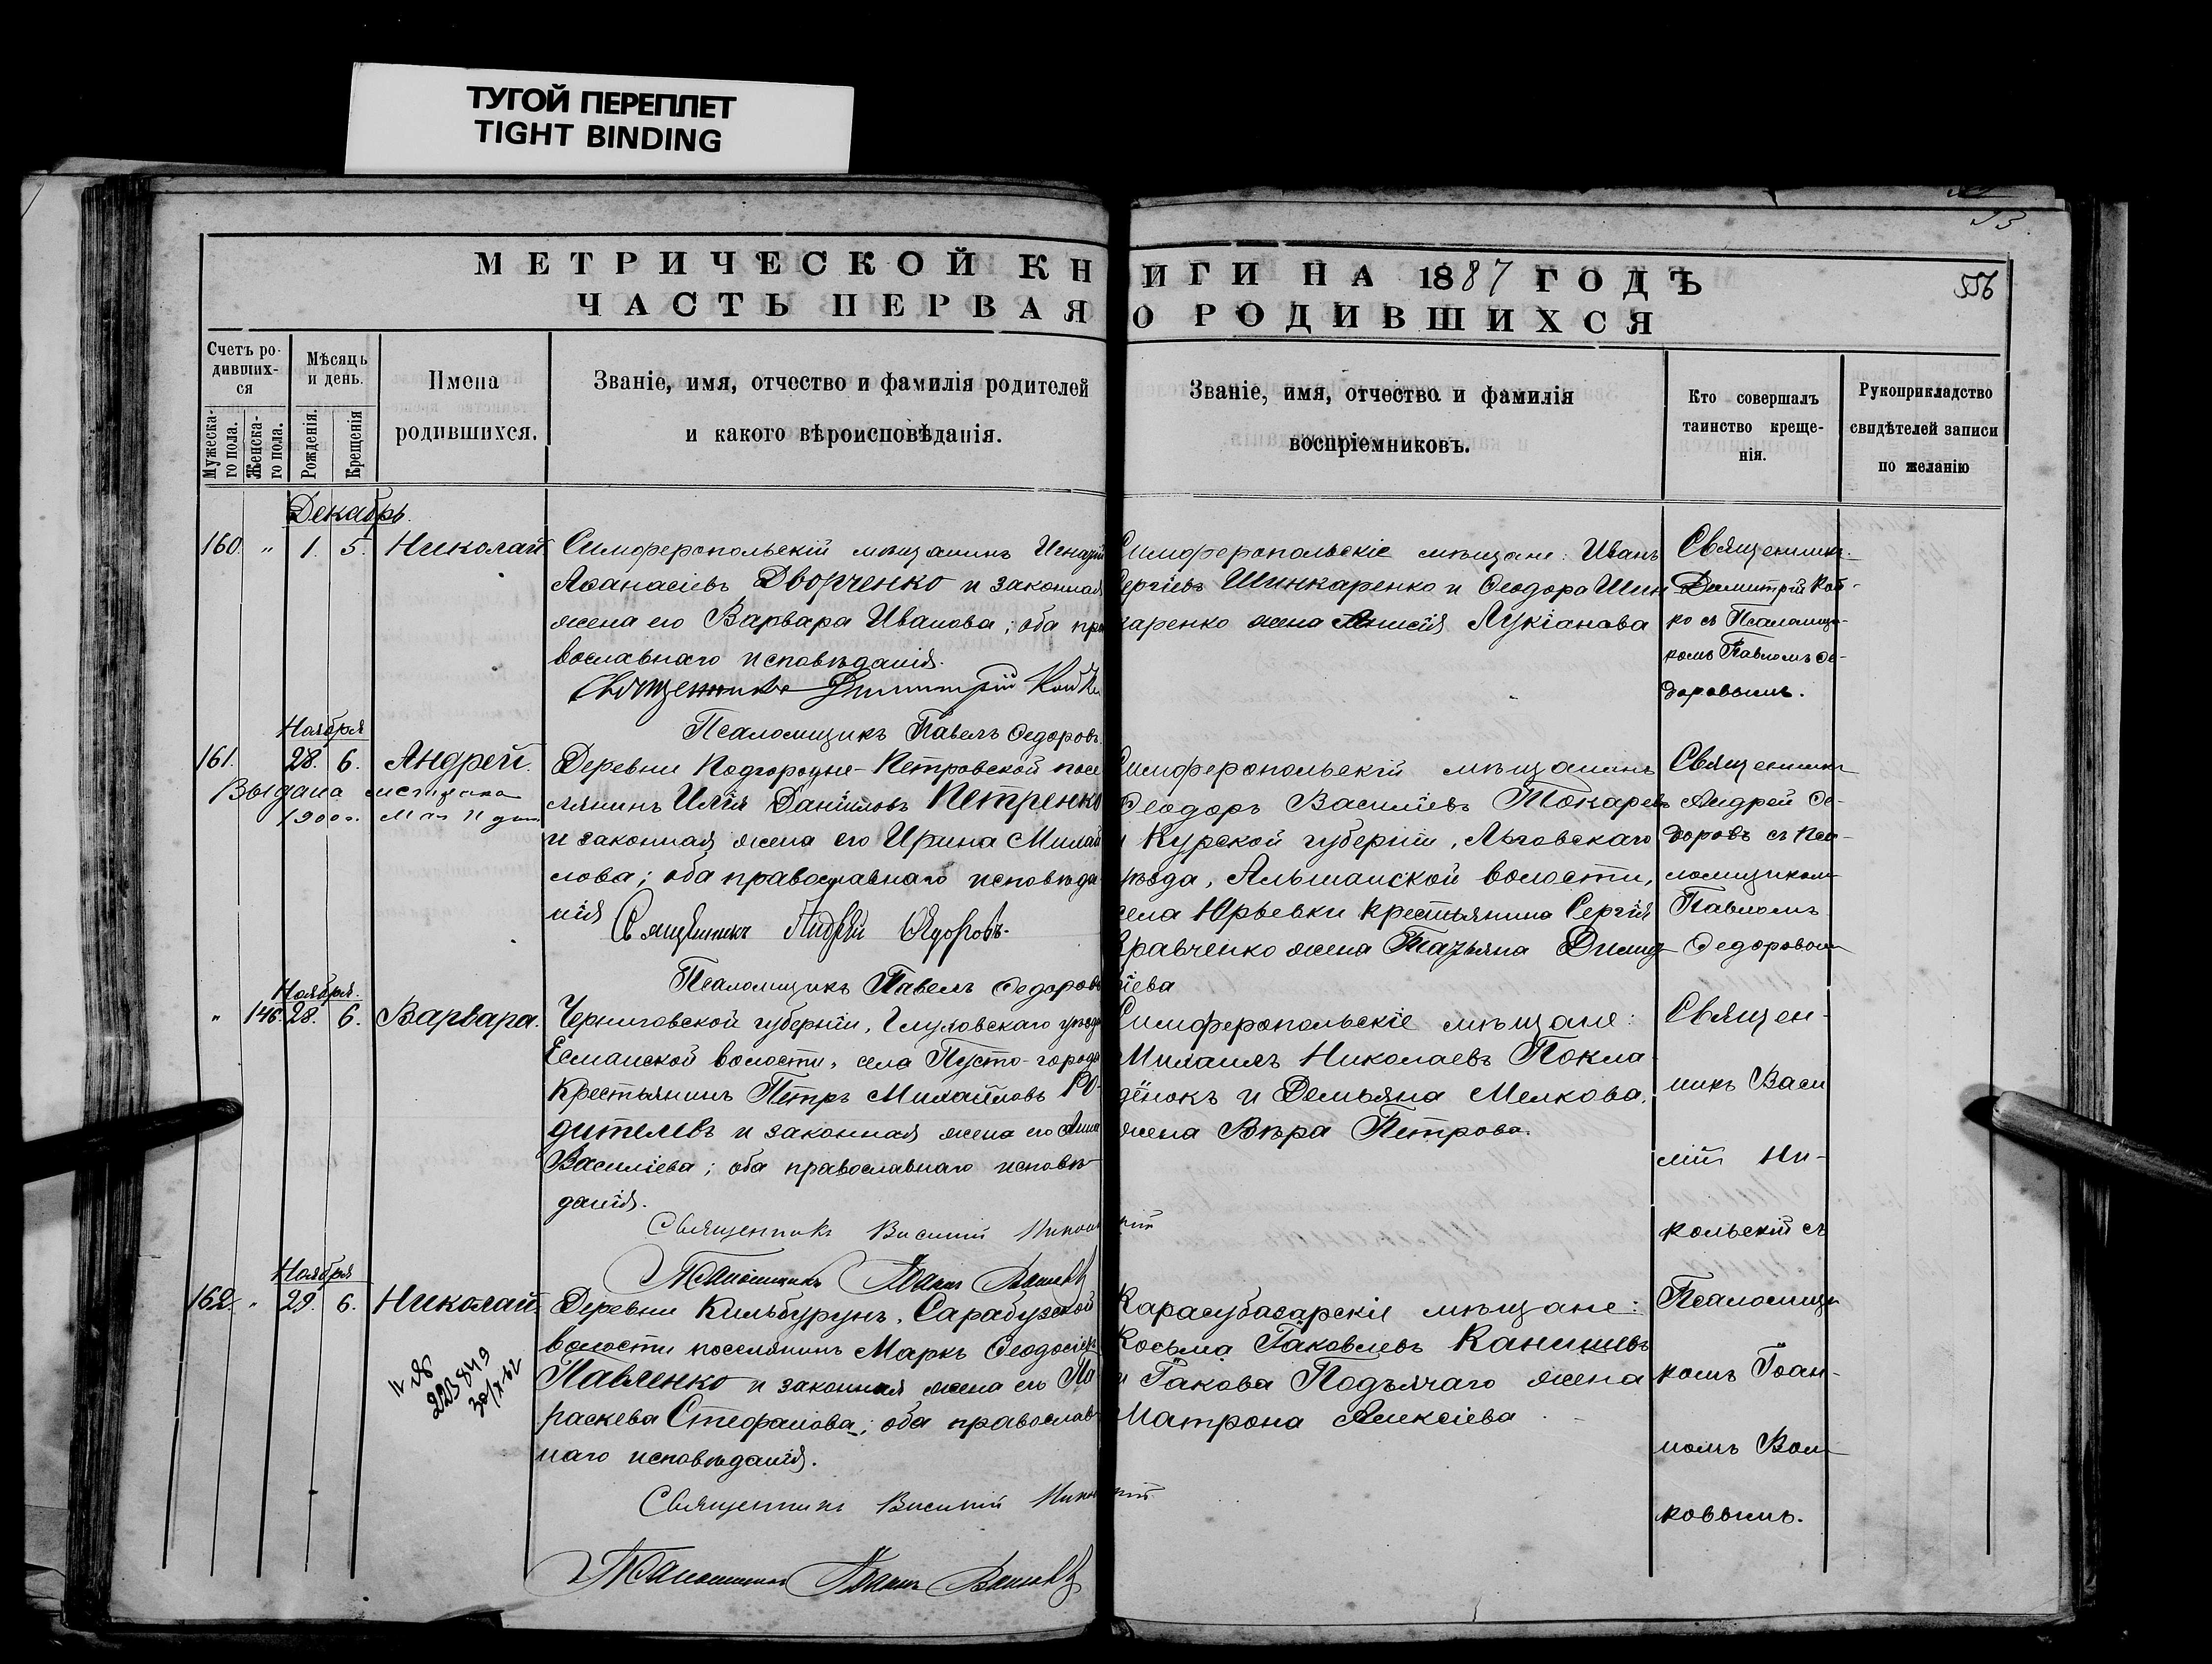 ТУГОЙ ПЕРЕПЛЕТ
TIGHT BINDING
53.
556
МЕТРИЧЕСКОЙ КНИГИ НА 1887 ГОДЪ
ЧАСТЬ ПЕРВАЯ О РОДИВШИХСЯ
Счетъ родившихся
Мужескаго пола.
Женскаго пола.
Мѣсяцъ и день.
Рожденія.
Крещенія
Имена родившихся.
Званіе, имя, отчество и фамилія родителей
и какого вѣроисповѣданія.
Званіе, имя, отчество и фамилія
воспріемниковъ.
Кто совершалъ
таинство креще-
нія.
Рукоприкладство
свидѣтелей записи
по желанію
Декабрь.
160. " 1. 5. Николай
Симферопольскій мѣщанинъ Игнатій
Аѳанасіевъ Дворченко и законная
жена его Варвара Иванова; оба пра
вославнаго исповѣданія.
Священникъ Димитрій Койко
Псаломщикъ Павелъ Ѳедоровъ.
Симферопольскіе мѣщане: Иванъ
Сергіевъ Шинкаренко и Ѳеодора Шин
каренко жена Анисія Лукіанова
Священникъ
Димитрій Кой-
ко съ Псаломщи-
комъ Павломъ Ѳе-
доровымъ.
Ноября
161. 28. 6. Андрей.
Выдана метрика
1900 г. Мая 11 дня
Деревни Подгородне-Петровской посе
лянинъ Илія Даніиловъ Петренко
и законная жена его Ирина Михай
лова; оба православнаго исповѣда
нія
Священникъ Андрей Ѳедоровъ.
Псаломщикъ Павелъ Ѳедоровъ
Симферопольскій мѣщанинъ
Ѳеодоръ Василіевъ Токаревъ
и Курской губерніи, Льговскаго
уѣзда, Альшанской волости,
села Юрьевки крестьянина Сергія
Кравченко жена Татьяна Димит
ріева
Священникъ
Андрей Ѳе-
доровъ съ Пса-
ломщикомъ
Павломъ
Ѳедоровымъ
Ноября.
" 146. 28. 6. Варвара.
Черниговской губерніи, Глуховскаго уѣзда
Есманской волости, села Пусто-города
Крестьянинъ Петръ Михайловъ Ро-
дителевъ и законная жена его Анна
Василіева; оба православнаго исповѣ-
данія.
Священникъ Василій Никольскій
Псаломщикъ Іоаннъ Волковъ
Симферопольскіе мѣщане:
Михаилъ Николаевъ Покла-
дёнокъ и Демьяна Мелкова
жена Вѣра Петрова.
Священ-
никъ Васи
лій Ни-
кольскій съ
Псаломщи
комъ Іоан-
номъ Вол-
ковымъ.
Ноября
162. " 29. 6. Николай.
Деревни Кильбурунъ, Сарабузской
волости поселянинъ Маркъ Ѳеодосіевъ
Павленко и законная жена его Па
раскева Стефанова; оба православ
наго исповѣданія.
Священникъ Василій Никольскій
Псаломщикъ Іоаннъ Волковъ
Карасубазарскіе мѣщане:
Косьма Іаковлевъ Канищевъ
и Іакова Подъячаго жена
Матрона Алексіева